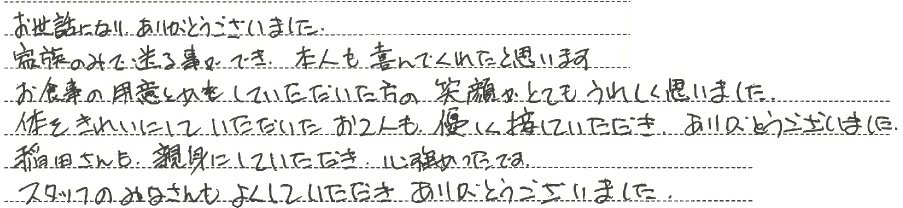 お世話になり、ありがとうございました。
家族のみで送る事ができ、本人も喜んでくれたと思います
お食事の用意とかをしていただいた方の笑顔がとてもうれしく思いました。
体をきれいにしていただいたお2人も優しく接していただき、ありがとうございました。
稲田さんも、親身にしていただき、心強かったです。
スタッフのみなさんもよくしていただきありがとうございました。